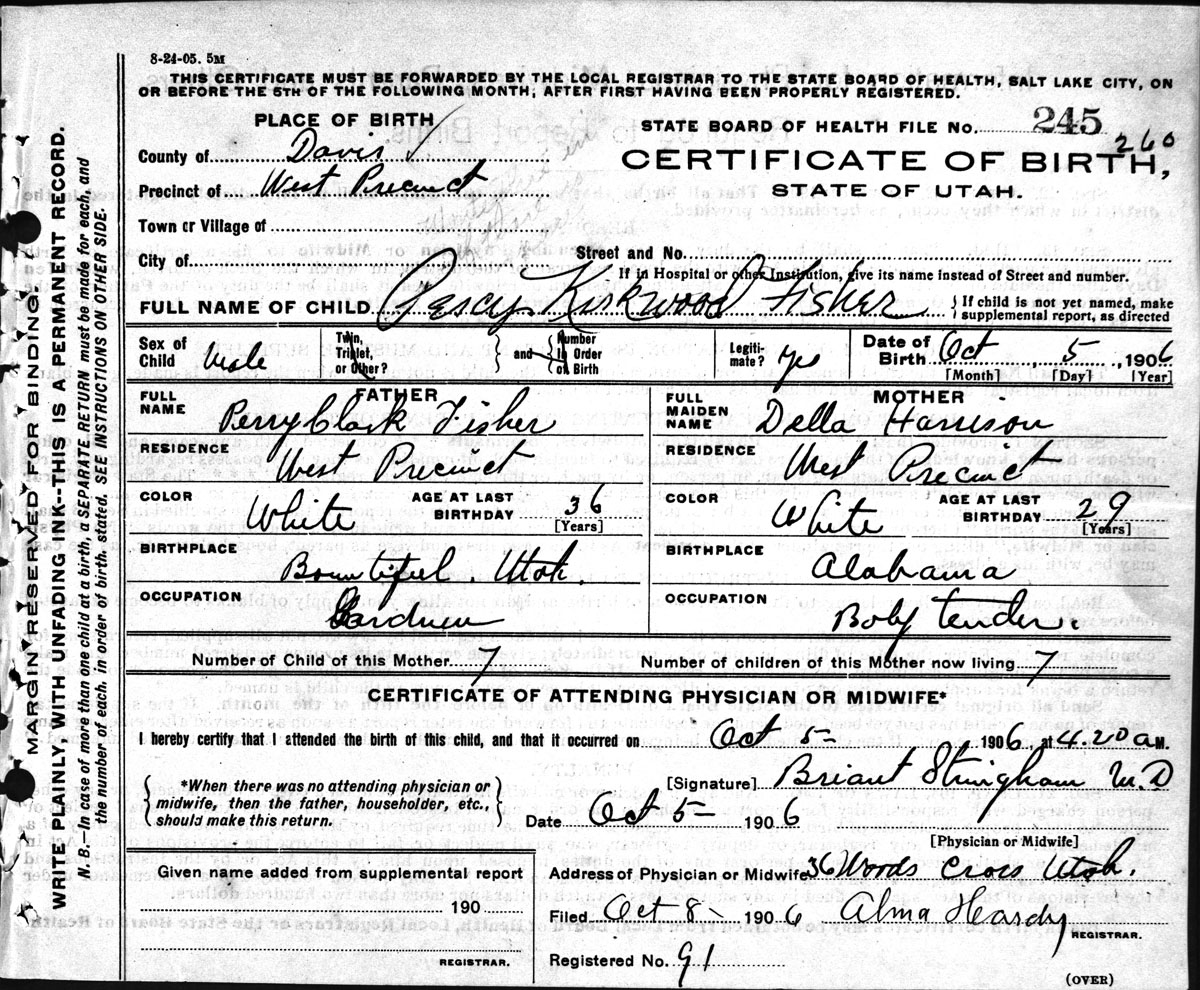 8-24-05. 5M
THIS CERTIFICATE MUST BE FORWARDED BY THE LOCAL REGISTRAR TO THE STATE BOARD OF HEALTH, SALT LAKE CITY, ON
OR BEFORE THE 5TH OF THE FOLLOWING MONTH; AFTER FIRST HAVING BEEN PROPERLY REGISTERED.
PLACE OF BIRTH
STATE BOARD OF HEALTH FILE No. 245
260
County of Davis
CERTIFICATE OF BIRTH,
Precinct of West Precinct
STATE OF UTAH.
Town or Village of
City of
Street and No.
If in Hospital or other Institution, give its name instead of Street and number.
FULL NAME OF CHILD Percy Kirkwood Fisher { If child is not yet named, make supplemental report, as directed
Sex of Child Male Twin, Triplet, or Other? { and } Number In Order of Birth Legiti-mate? yes Date of Birth Oct 5 1906
[Month] [Day] [Year]
FATHER
MOTHER
FULL NAME Perry Clark Fisher
FULL MAIDEN NAME Della Harrison
RESIDENCE West Precinct
RESIDENCE West Precinct
COLOR White AGE AT LAST BIRTHDAY 36 [Years]
COLOR White AGE AT LAST BIRTHDAY 29 [Years]
BIRTHPLACE Bountiful. Utah.
BIRTHPLACE Alabama
OCCUPATION Gardner
OCCUPATION Baby tender.
Number of Child of this Mother 7
Number of children of this Mother now living 7
CERTIFICATE OF ATTENDING PHYSICIAN OR MIDWIFE*
I hereby certify that I attended the birth of this child, and that it occurred on Oct 5- 1906, at 4.20 a M.
{ *When there was no attending physician or
midwife, then the father, householder, etc.,
should make this return. }
[Signature] Briant Stringham M.D
Date Oct 5- 1906
[Physician or Midwife]
Given name added from supplemental report
190
REGISTRAR.
Address of Physician or Midwife 36 Woods Cross Utah.
Filed Oct 8- 1906 Alma Hardy
REGISTRAR.
Registered No. 91
(OVER)
MARGIN RESERVED FOR BINDING
WRITE PLAINLY, WITH UNFADING INK--THIS IS A PERMANENT RECORD.
N. B.--In case of more than one child at a birth, a SEPARATE RETURN must be made for each, and
the number of each, in order of birth, stated. SEE INSTRUCTIONS ON OTHER SIDE.